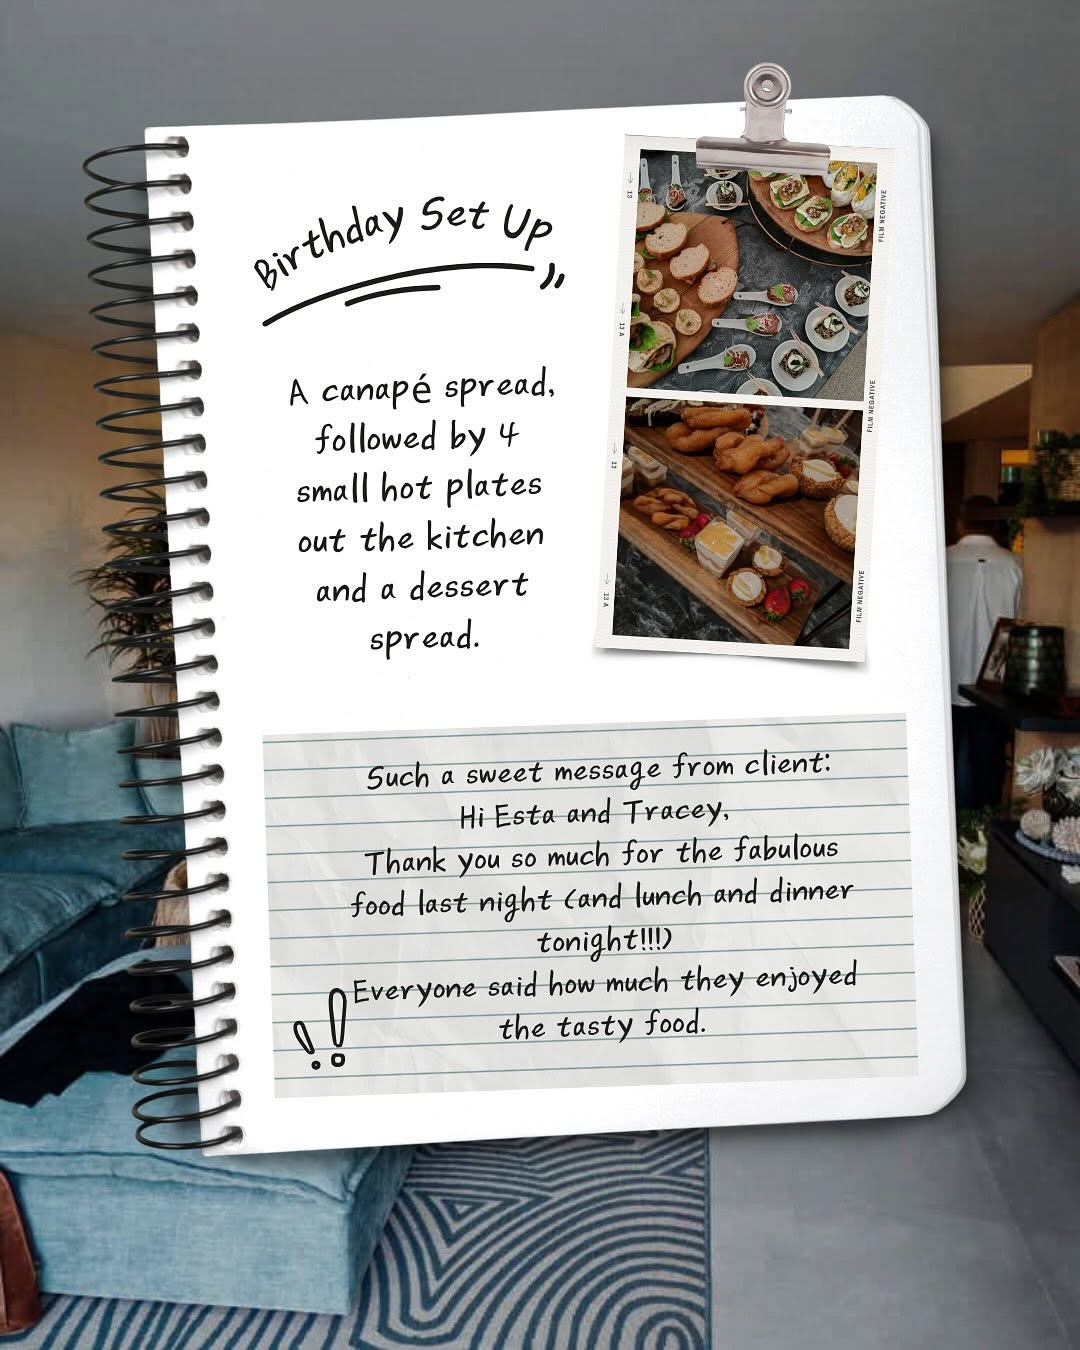 Birthday Set Up
A canapé spread,
followed by 4
small hot plates
out the kitchen
and a dessert
spread.
13
FILM NEGATIVE
13 A
FILM NEGATIVE
13
13 A
FILM NEGATIVE
Such a sweet message from client:
Hi Esta and Tracey,
Thank you so much for the fabulous
food last night (and lunch and dinner
tonight!!!)
Everyone said how much they enjoyed
the tasty food.